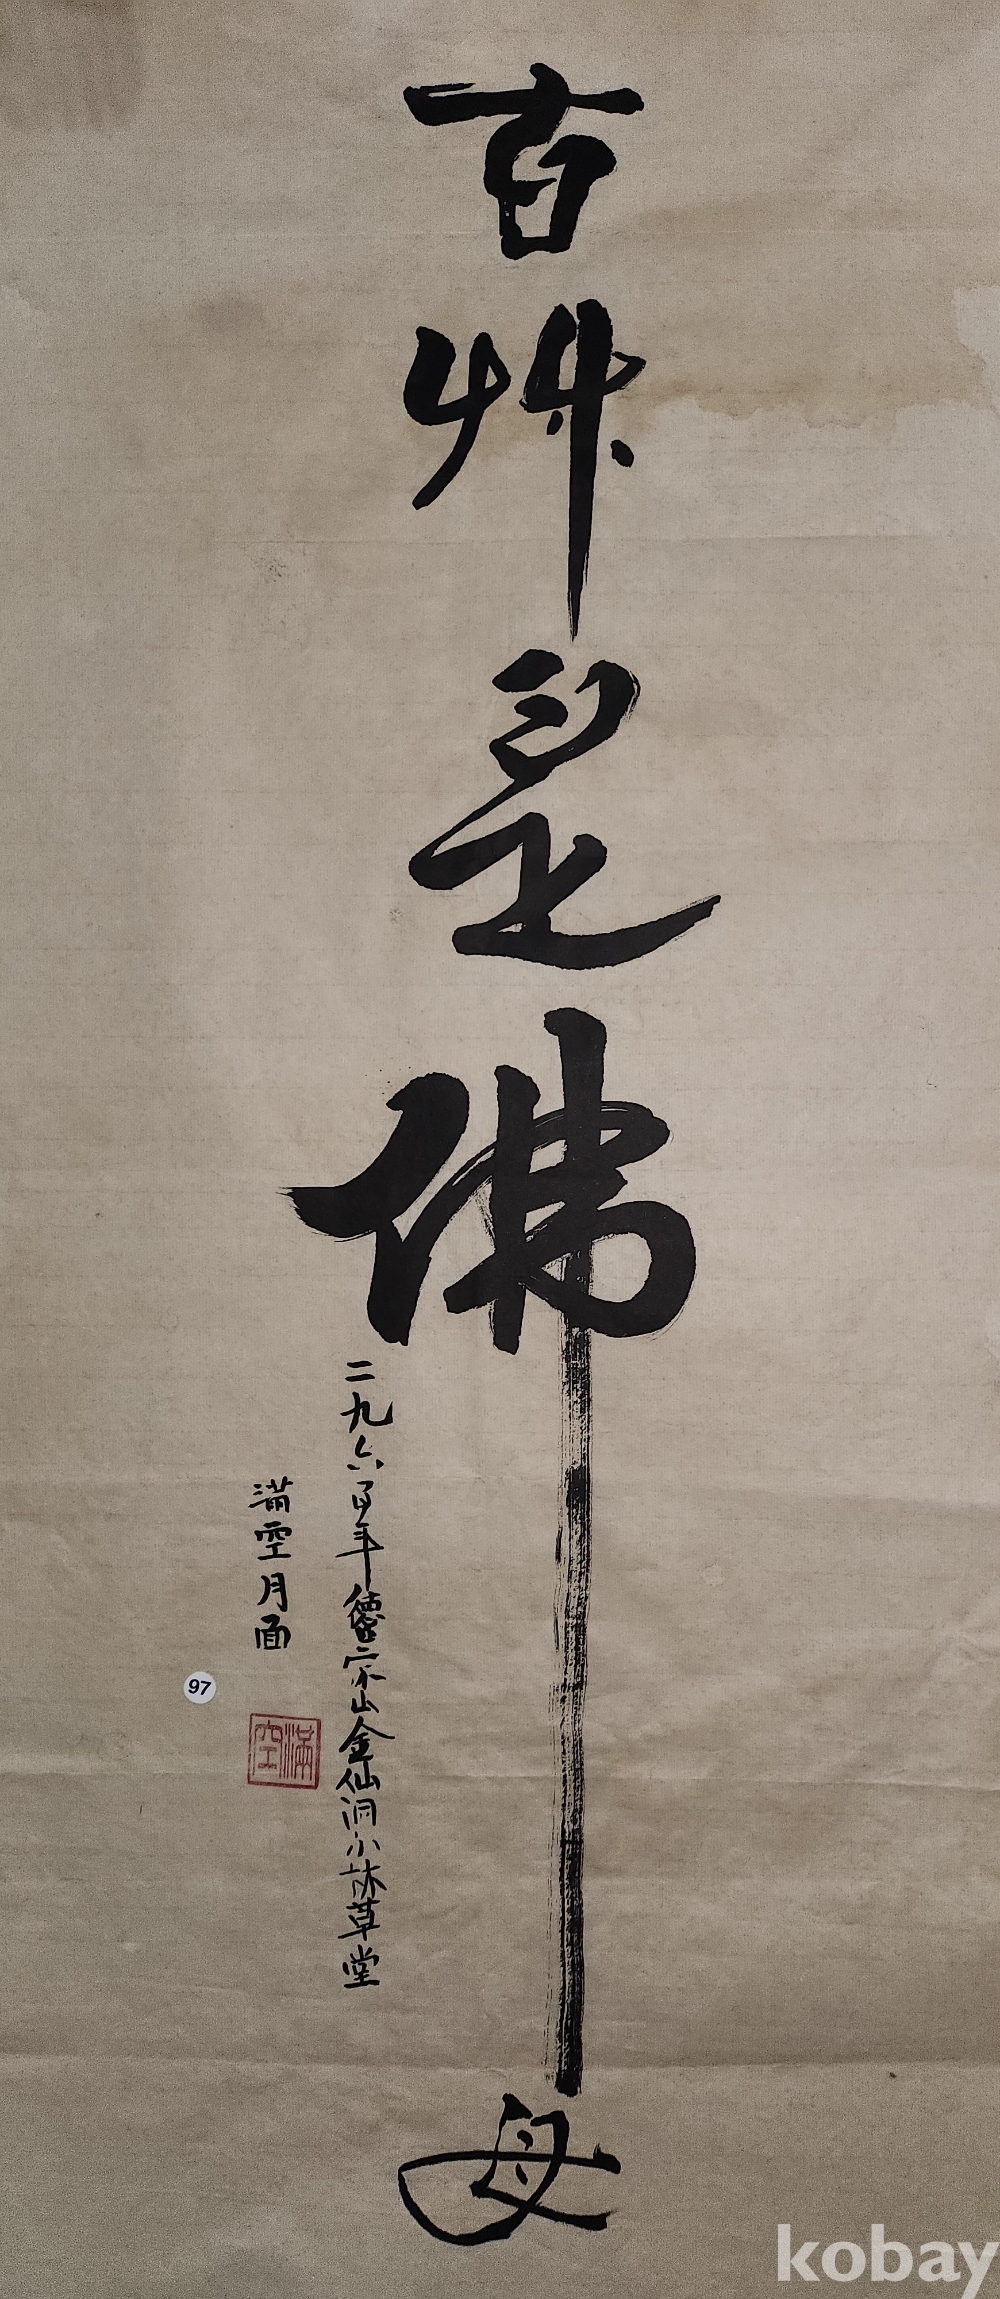 百艸是佛母
二九六百年德崇山金仙洞小林草堂
滿空月面
滿空
97
kobay